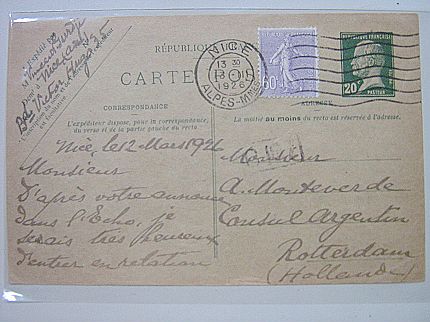 RÉPUBLIQUE
NICE
13 30
1926
ALPES-MMES
60c
20c
PASTEUR
CARTE
CORRESPONDANCE
ADRESSE
L'expéditeur dispose, pour la correspondance,
du verso et de la partie gauche du recto
La moitié au moins du recto est réservée à l'adresse.
Bd Victor Hugo
Nice, le 12 Mars 1926
Monsieur
D'après votre annonce
dans l'Echo, je
serais très heureux
d'entrer en relation
Monsieur
A. Monteverde
Consul Argentin
Rotterdam
(Hollande)